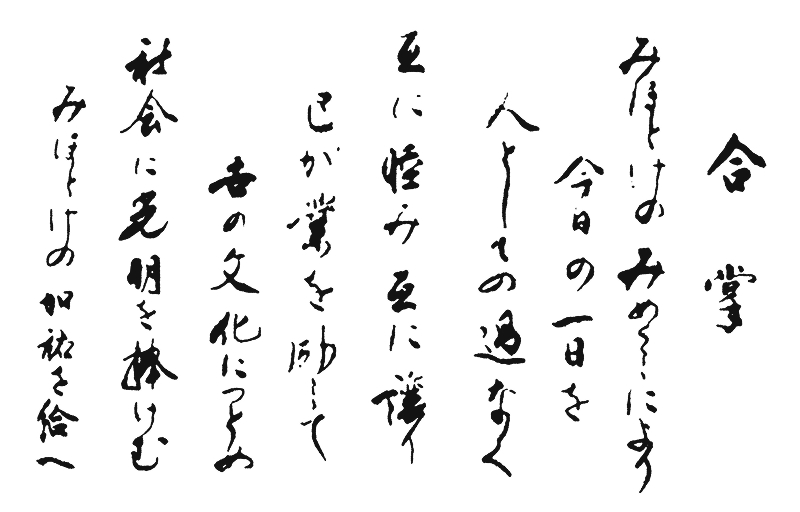 合掌
みほとけのみめぐみにより
今日の一日を
人としての過なく
互に睦み互に譲り
己が業を励して
舌の文化につとめ
社会に光明を捧げむ
みほとけの加祐を給へ